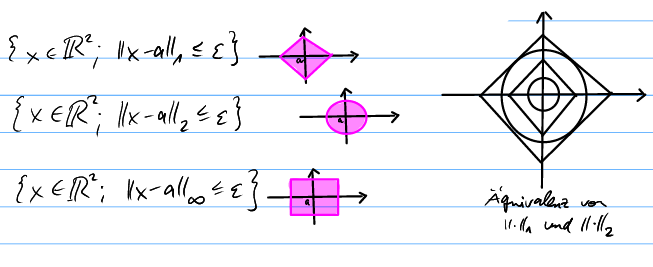 {x ∈ ℝ²; ||x-a||₁ ≤ ε}
a
{x ∈ ℝ²; ||x-a||₂ ≤ ε}
a
{x ∈ ℝ²; ||x-a||∞ ≤ ε}
a
Äquivalenz von
||·||₁ und ||·||₂